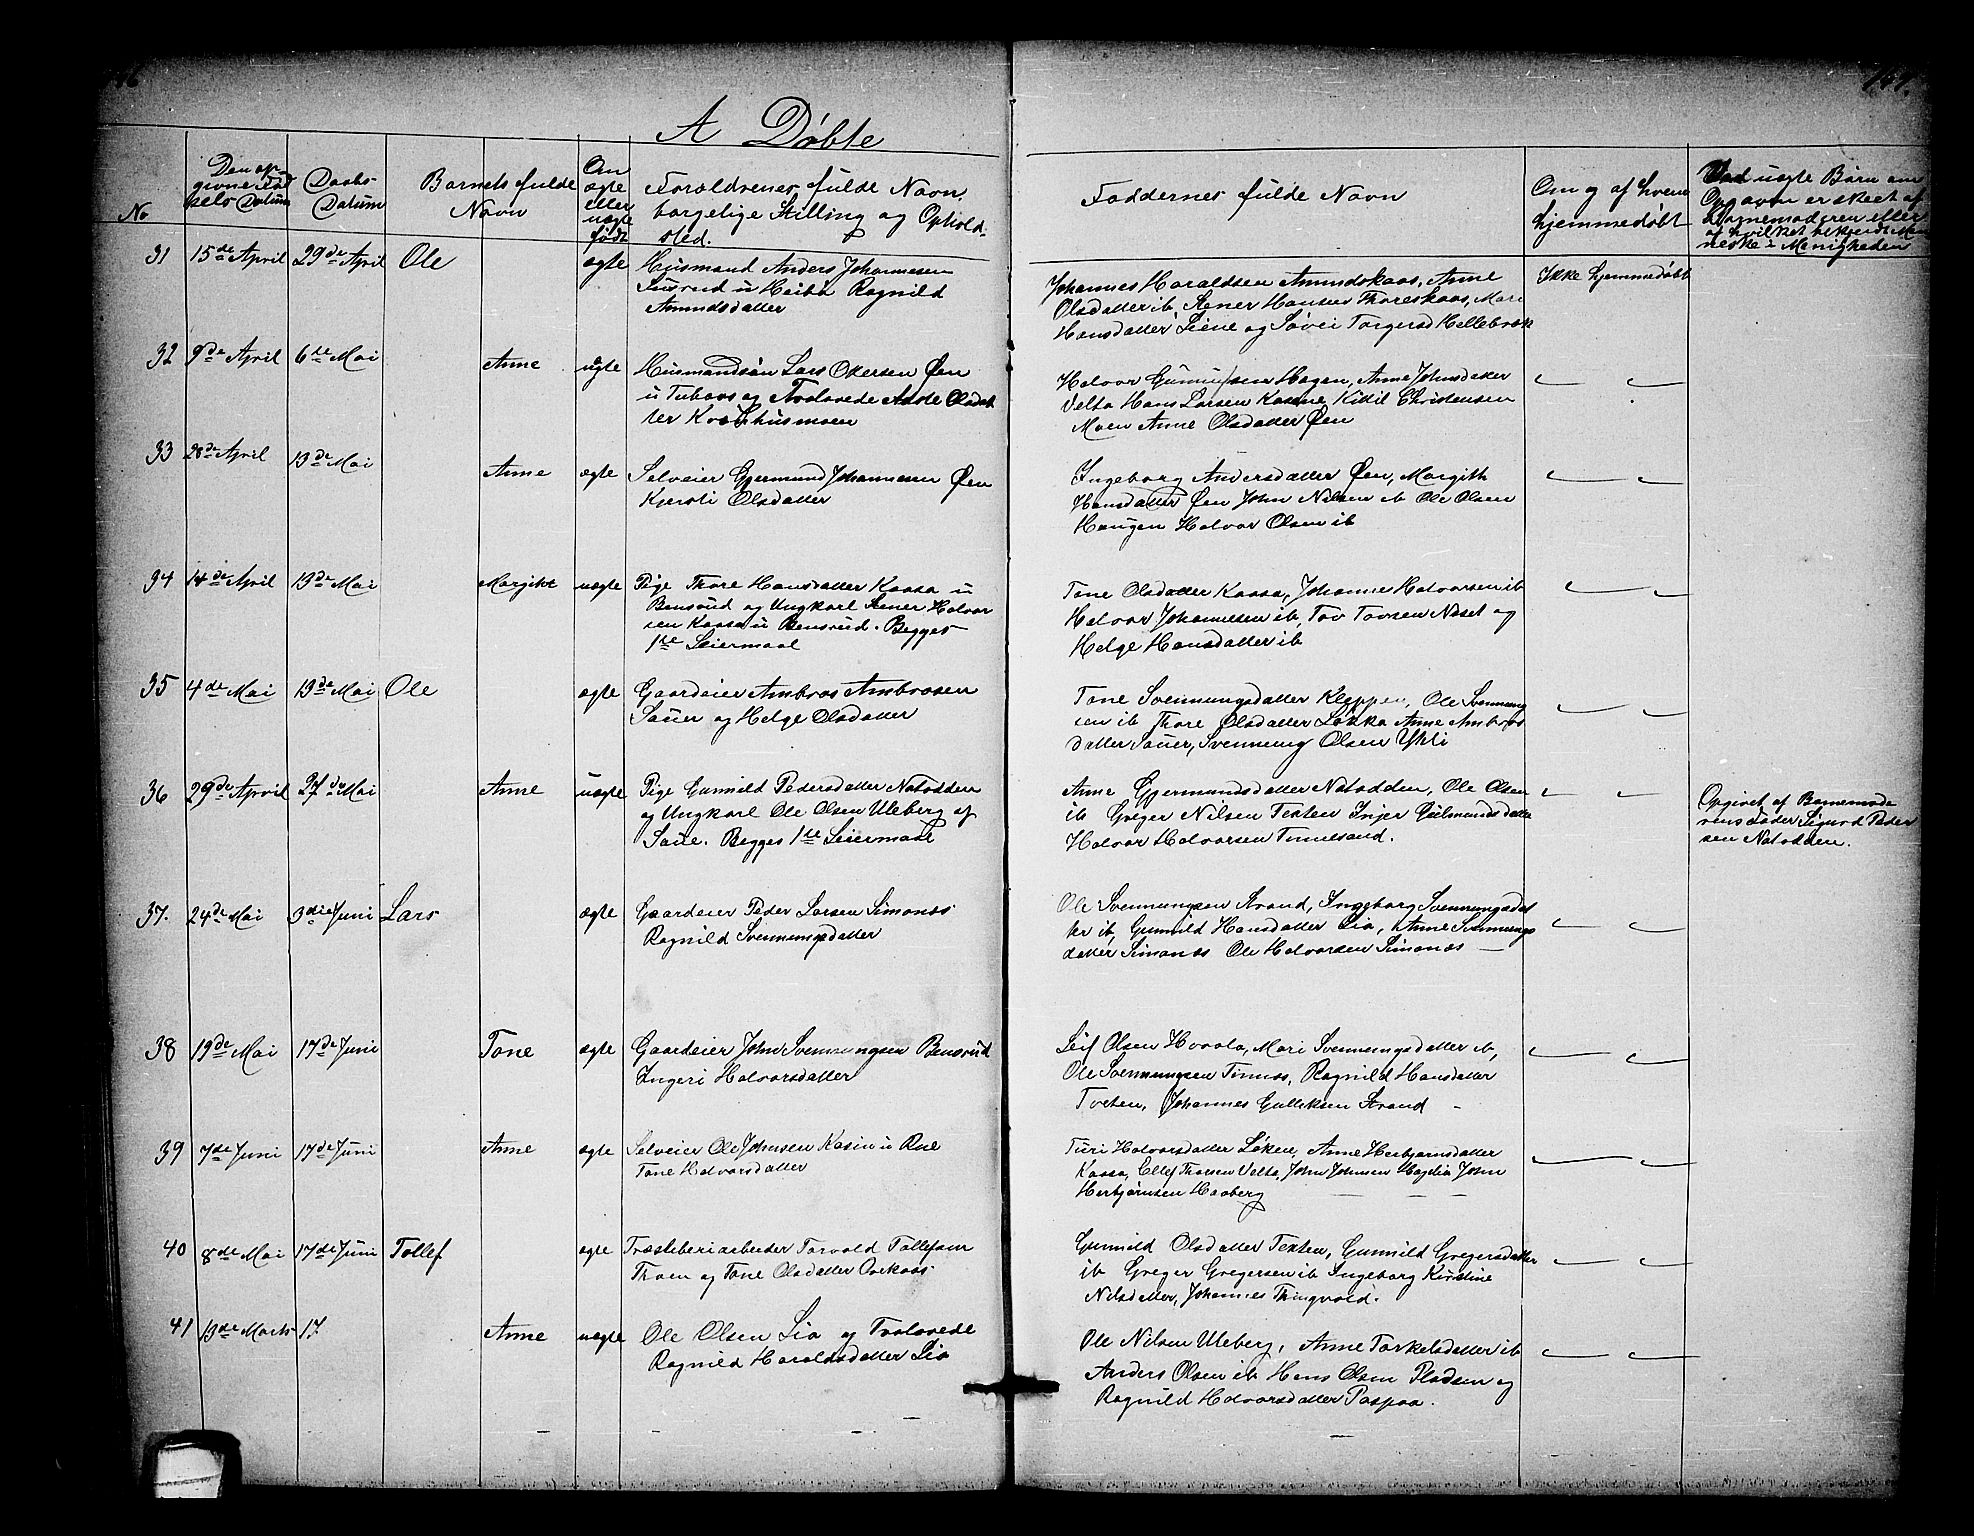 46
147.
A Døbte
No
Den op-
givne Fød
sels Datum
Daabs-
Datum
Barnets fulde
Navn
Om
ægte
eller
uægte
født
Forældrenes fulde Navn,
borgelige Stilling og Ophold-
sted.
Faddernes fulde Navn
Om og af hvem
hjemmedøbt
Ved uægte Børn om
Opgaven er skeet af
Barnemoderen eller
af hvilket bekjendt Men
neske i Menigheden
31 15de April 29de April Ole ægte Husmand Anders Johannesen
u Heibø Ragnild
Amundsdatter
Johannes Haraldsen Amundskaas, Anne
Olsdatter ib, Stener Hansen Thoreskaas, Mari
Hansdatter Leine og Søvei Torgersd Hellebræk
Ikke hjemmedøbt
32 9de April 6te Mai Anne ugte Husmandsøn Lars Olsersen Øen
u Tubaas og Trolovede Aase Olsdat
ter Kvashusmoen
Halvor Hagen, Anne Johnsdatter
Velta Hans Larsen Kasine, Kittil Christensen
Moen Anne Olsdatter Øen
33 28de April 13de Mai Anne ægte Selveier Gjermund Johannesen Øen
Kjersti Olsdatter
Ingeborg Andersdatter Øen, Margith
Hansdatter Øen John Nilsen ib Ole Olsen
Haugen Halvor Olsen ib
34 14de April 13de Mai Margitt uægte Pige Thore Hansdatter Kaasa u
Bensrud og Ungkarl Stener Halvor
sen Kaasa u Bensrud. Begges
1te Leiermaal
Tone Olsdatter Kaasa, Johanne Halvorsen ib
Halvor Johannesen ib, Tov Tovsen Næset og
Helge Hansdatter ib
35 4de Mai 13de Mai Ole ægte Gaardeier Ambros Ambrosen
Sauer og Helge Olsdatter
Tone Svennungsdatter Kleppen, Ole Svennung
sen ib Thore Olsdatter Løkka Anne Ambros
datter Sauer, Svennung Olsen Ytli
36 29de Aprvil 27de Mai Anne uægte Pige Gunnild Pedersdatter Notodden
og Ungkarl Ole Olsen Uleberg af
Saue. Begges 1te Leiermaal
Anne Gjermundsdatter Notodden, Ole Olsen
ib Greger Nilsen Texten Injer Gulmundsdatter
Halvor Halvorsen Tinnesand.
Opgivet af Barnemode
rens Fader Sigurd Peder
sen Notodden.
37. 24de Mai 3die Juni Lars ægte Gaardeier Peder Larsen Simonæs
Ragnild Svennungsdatter
Ole Svennungsen Strand, Ingeborg Svennungsdat
ter ib, Gunnild Hansdatter Lia, Anne Svennungs
datter Simonæs Ole Halvorsen Simonæs —
38 19de Mai 17de Juni Tone ægte Gaardeier John Svennungsen Bensrud
Ingeri Halvorsdatter
Leif Olsen Hovala, Mari Svennungsdatter ib,
Ole Svennungsen Tinnæs, Ragnild Hansdatter
Tveten, Johannes Gulliksen Strand -
39 7de Juni 17de Juni Anne ægte Selveier Ole Johnsen Kasin u Rue
Tone Halvorsdatter
Turi Halvorsdatter Løken, Anne Herbjørnsdatter
Kaasa, Ellef Thorsen Velta, John Johnsen Høgdia John
Herbjørnsen Haaberg — — —
40 8de Mai 17de Juni Tollef ægte Træsliberiarbeider Torvald Tollefsen
Thoen og Tone Olsdatter Ovekaas
Gunnild Olsdatter Texten, Gunnild Gregersdatter
ib Greger Gregersen ib Ingeborg Kirstine
Nilsdatter, Johannes Thingvold.
41 13de Marts 17 Anne uægte Ole Olsen Lia og Trolovede
Ragnild Haraldsdatter Lia
Ole Nilsen Uleberg, Anne Torkelsdatter ib
Anders Olsen ib Hans Olsen Pladsen og
Ragnild Halvorsdatter Paspaa.